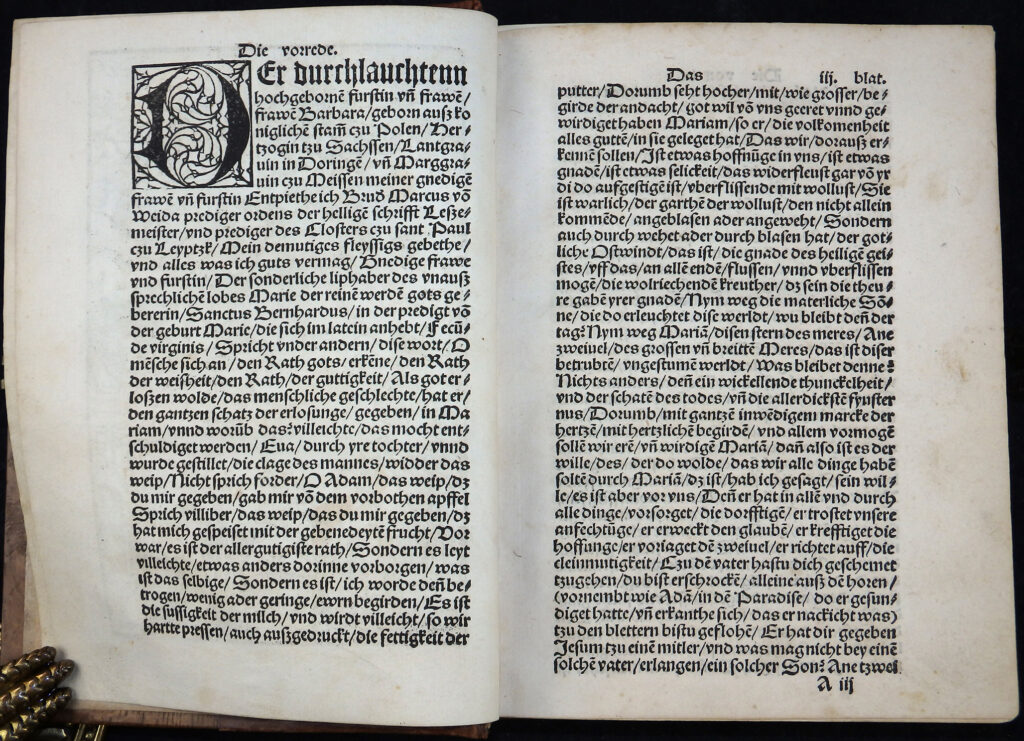 Die vorrede.
DEr durchlauchtenn
hochgebornē furstin vñ frawē/
frawē Barbara/geborn ausz ko
niglichē stam̄ czu Polen/Her⸗
tzogin tzu Sachssen/Lantgra⸗
uin in Doringē/ vñ Marggra⸗
uin czu Meissen meiner gnedigē
frawē vñ furstin Entpiethe ich Brud Marcus vō
Weida prediger ordens der helligē schrifft Lesze⸗
meister/vnd prediger des Closters czu sant Paul
czu Leyptzk/Mein demutiges fleyssigs gebethe/
vnd alles was ich guts vermag/Gnedige frawe
vnd furstin/Der sonderliche liphaber des vnausz
sprechlichē lobes Marie der reinē werdē gots ge⸗
bererin/Sanctus Bernhardus/in der predigt vō
der geburt Marie/die sich im latein anhebt/Fecū⸗
de virginis/Spricht vnder andern/dise wort/O
mēsche sich an/den Rath gots/erkēne/den Rath
der weisheit/den Rath/der guttigkeit/Als got er⸗
loszen wolde/das menschliche geschlechte/hat er/
den gantzen schatz der erlosunge/gegeben/in Ma
riam/vnnd worūb das? villeichte/das mocht ent⸗
schuldiget werden/Eua/durch yre tochter/vnnd
wurde gestillet/die clage des mannes/widder das
weip/Nicht sprich forder/O Adam/das weip/dz
du mir gegeben/gab mir vō dem vorbothen apffel
Sprich villiber/das weip/das du mir gegeben/dz
hat mich gespeiset mit der gebenedeytē frucht/Vor
war/es ist der allergutigiste rath/Sondern es leyt
villeichte/etwas anders dorinne vorborgen/was
ist das selbige/Sondern es ist/ich worde den̄ be⸗
trogen/wenig ader geringe/ewrn begirden/Es ist
die sussigkeit der milch/vnd wirdt villeicht/so wir
hartte pressen/auch auszgedruckt/die fettigkeit der
Das iij. blat.
putter/Dorumb seht hocher/mit/wie grosser/be⸗
girde der andacht/got wil vō vns geeret vnnd ge⸗
wirdiget haben Mariam/so er/die volkomenheit
alles guttē/in sie geleget hat/Das wir/dorausz er⸗
kennē sollen/Ist etwas hoffnūge in vns/ist etwas
gnadē/ist etwas selickeit/das widerfleust gar vō yr
di do auffgestigē ist/vberflissende mit wollust/Sie
ist warlich/der garthē der wollust/den nicht allein
kommēde/angeblasen ader angeweht/Sondern
auch durch wehet ader durch blasen hat/der got⸗
liche Ostwindt/das ist/die gnade des heiligē gei⸗
stes/vff das/an allē endē/flussen/vnnd vberflissen
mogē/die wolriechendē kreuther/dz sein die theu⸗
re gabē yrer gnadē/Nym weg die materliche Sō⸗
ne/die do erleuchtet dise werldt/wu bleibt den̄ der
tag? Nym weg Mariā/disen stern des meres/Ane
zweiuel/des grossen vñ breittē Meres/das ist diser
betrubtē/vngestumē werldt/Was bleibet denne?
Nichts anders/den̄ ein wickellende thunckelheit/
vnd der schatē des todes/vñ die allerdickstē fynster
nus/Dorumb/mit gantzē inwēdigem marcke der
hertzē/mit hertzlichē begirdē/vnd allem vormogē
sollē wir erē/vñ wirdigē Mariā/dan̄ also ist es der
wille/des/der do wolde/das wir alle dinge habē
soltē durch Mariā/dz ist/hab ich gesagt/sein wil⸗
le/es ist aber vor vns/Den̄ er hat in allē vnd durch
alle dinge/vorsorget/die dorfftigē/er trostet vnsere
anfechtūge/er erweckt den glaubē/er krefftiget die
hoffunge/er voriaget dē zweiuel/er richtet auff/die
cleinmutigkeit/Czu dē vater hastu dich gescheuet
tzugehen/du bist erschrockē/alleine ausz dē horen/
(vornembt wie Adā/in dē Paradise/do er gesun⸗
diget hatte/vñ erkanthe sich/das er nackicht was)
tzu den blettern bistu geflohē/Er hat dir gegeben
Jesum tzu einē mitler/vnd was mag nicht bey einē
solchē vater/erlangen/ein solcher Son? Ane tzwei
A iij